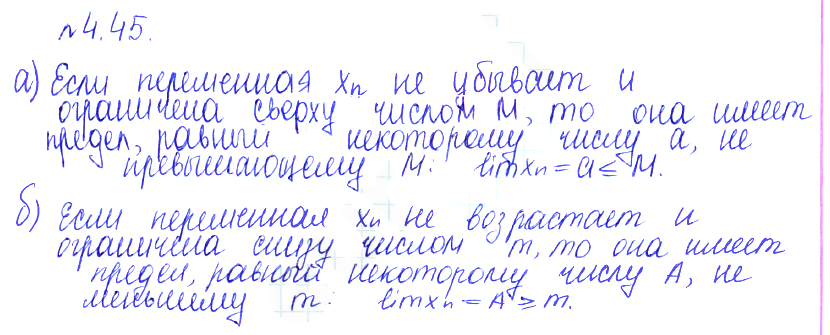 №4.45.
а) Если переменная xₙ не убывает и
ограничена сверху числом M, то она имеет
предел, равный некоторому числу a, не
превышающему M: lim xₙ = a ≤ M.
б) Если переменная xₙ не возрастает и
ограничена снизу числом m, то она имеет
предел, равный некоторому числу A, не
меньшему m: lim xₙ = A ≥ m.